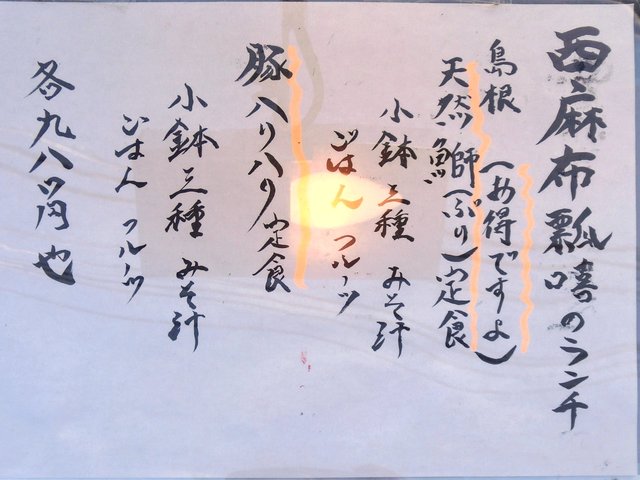 西麻布瓢嘻のランチ
(お得ですよ)
島根
天然鰤(ぶり)定食
小鉢三種 みそ汁
ごはん フルーツ
豚ハリハリ定食
小鉢三種 みそ汁
ごはん フルーツ
各九八〇円也